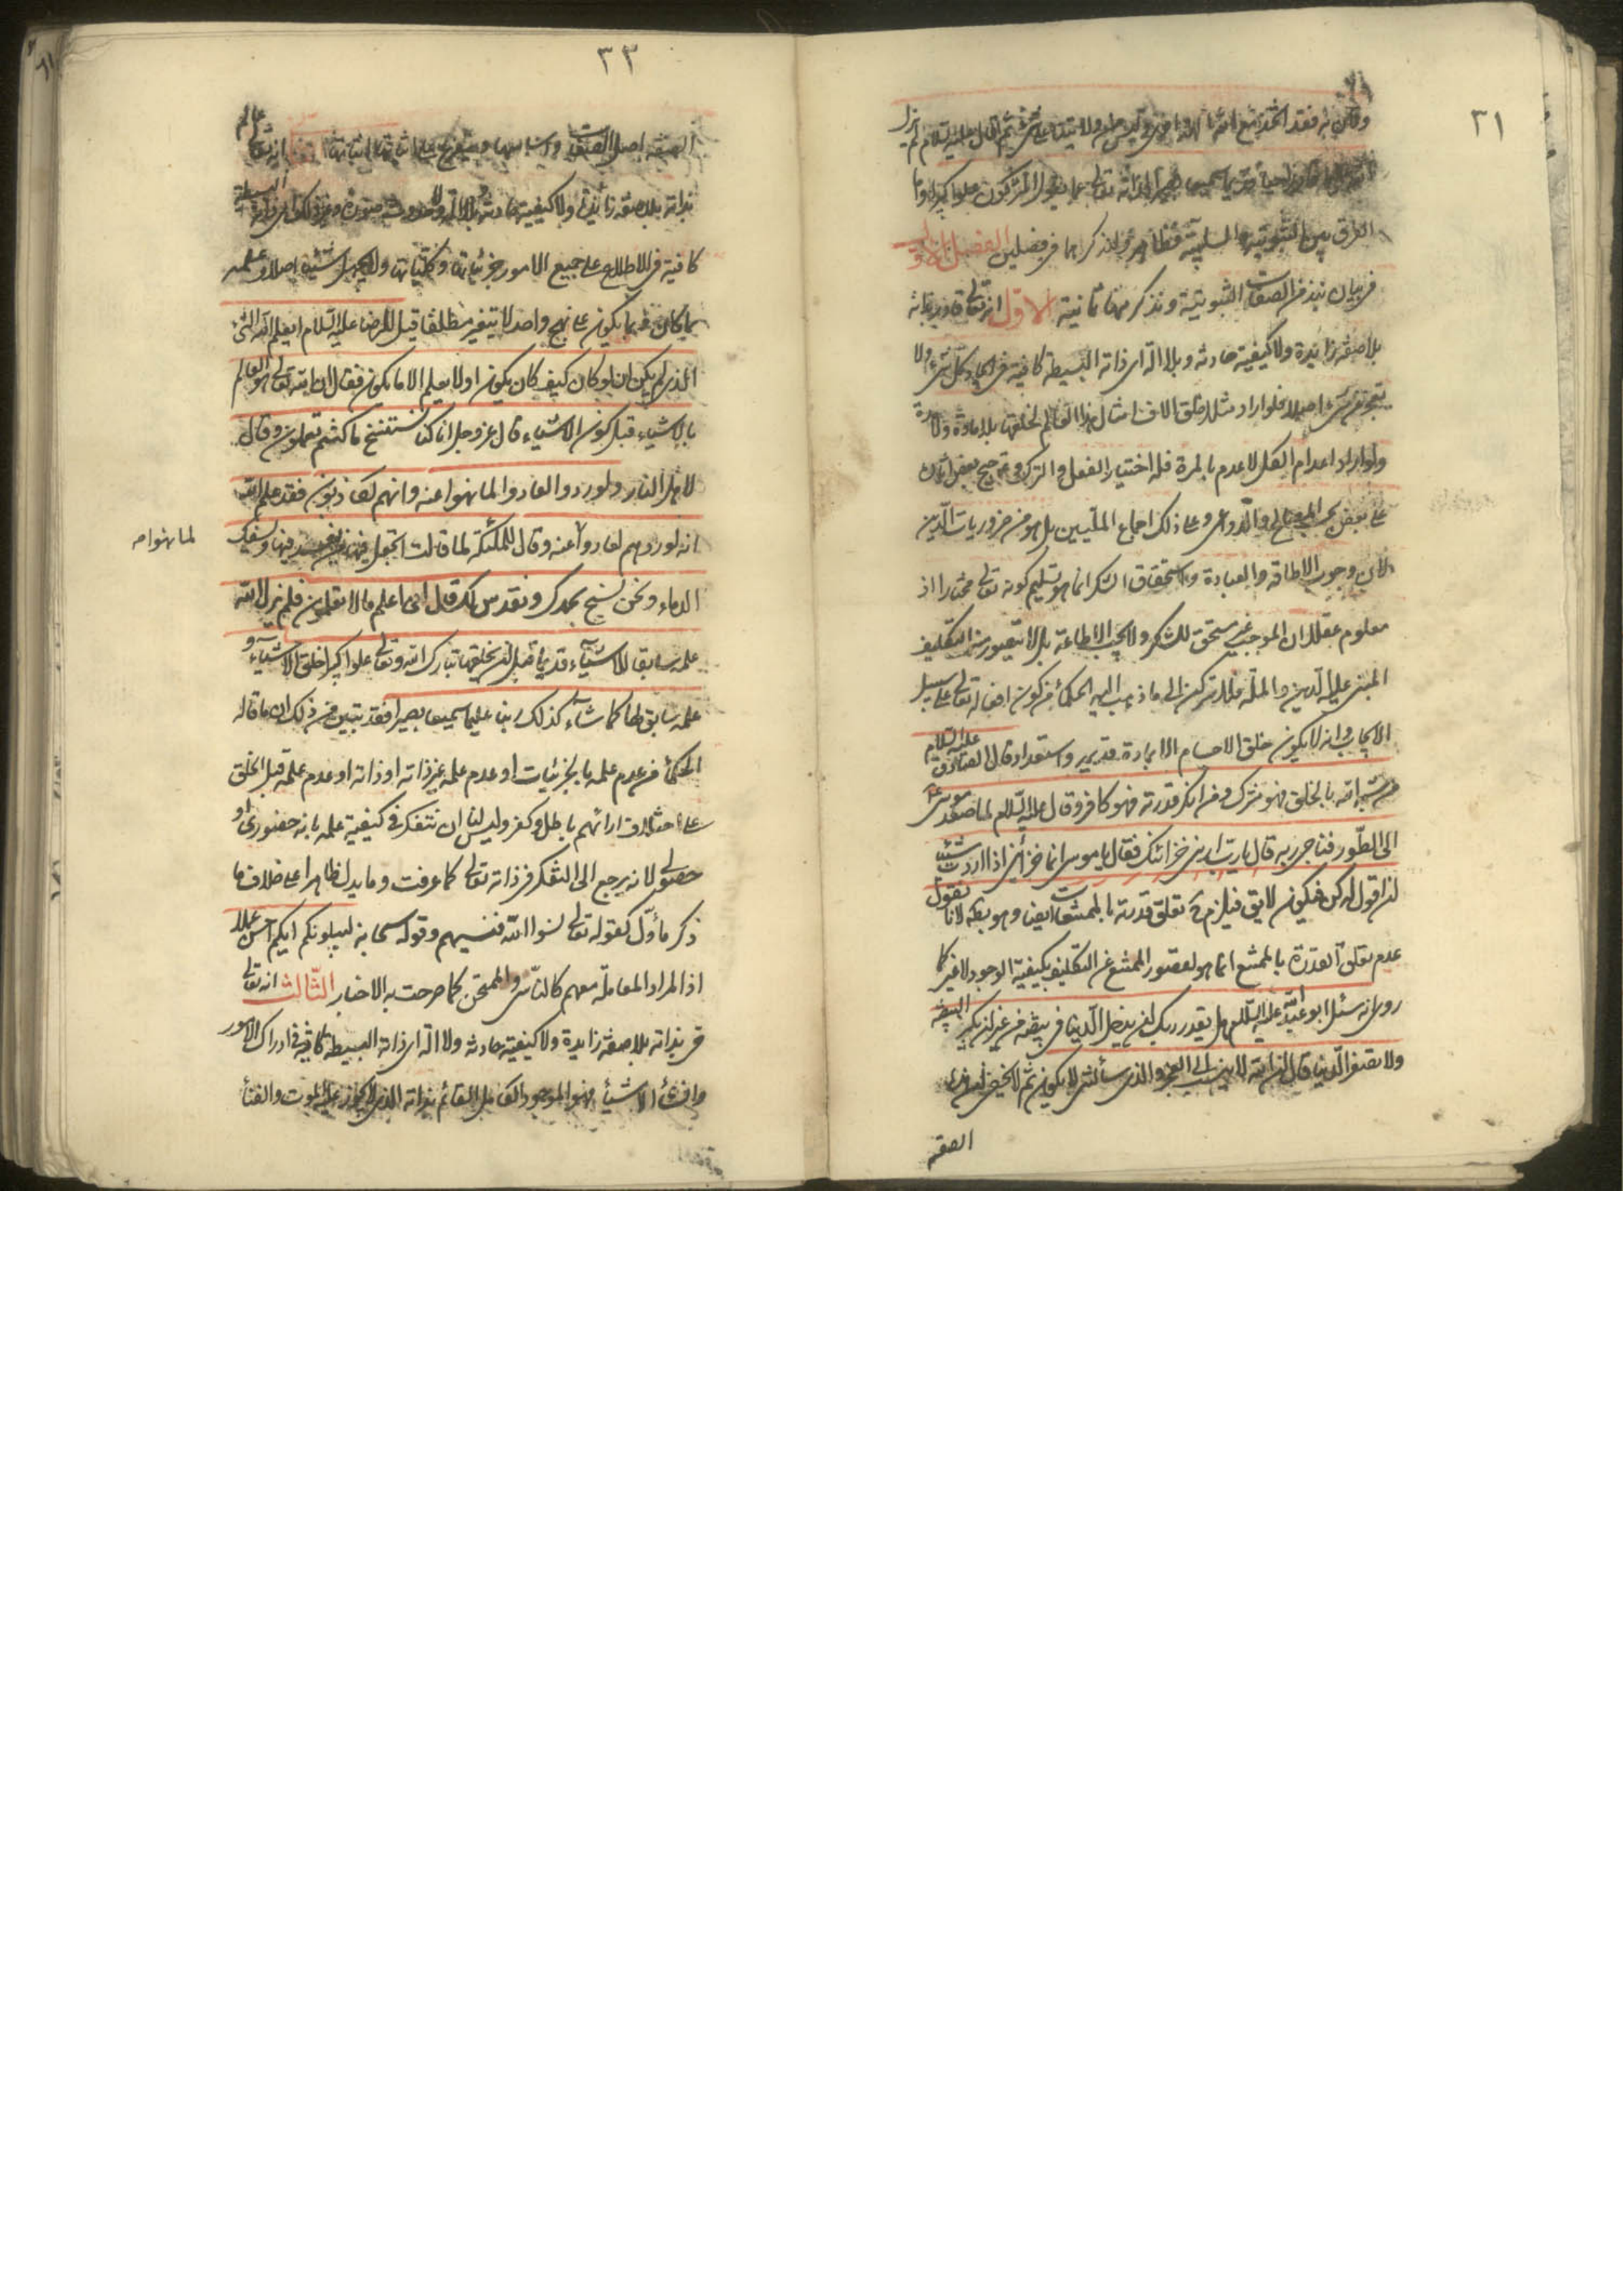 ٣١
الفرق بين الثبوتية والسلبية فظاهر ولنذكرهما في فصلين الفصل الاول
في بيان نبذ من الصفات الثبوتية ونذكر منها ثمانية الاول انه تعالى قادر بذاته
بلا صفة زائدة ولا كيفية حادثة وبلا الة اي ذاته البسيطة كافية في ايجاد كل شئ ولا
يعجز عن شئ اصلا فلو اراد مثلا خلق الاف امثال هذا العالم لخلقها بلا مادة ولا مدة
ولو اراد اعدام الكل لاعدم بالمرة فله اختيار الفعل والترك وترجيح بعض
على بعض بحسب المصالح والدواعي وعلى ذلك اجماع المليين بل هو من ضروريات الدين
لان وجوب الاطاقه والعبادة واستحقاق الشكر انما هو بتسليم كونه تعالى مختارا اذ
معلوم عقلا ان الموجب غير مستحق للشكر ولا يجب الاطاعة بل لا يتصور منه التكليف
المبنى عليه الدين والملة فلا تركن الى ما ذهب اليه الحكماء من كون افعاله تعالى على سبيل
الايجاب وانه لا يكون خلق الاجسام الا بمادة قديمة واستعداد قال الصادق عليه السلام
من شبه الله بالخلق فهو مشرك ومن انكر قدرته فهو كافر وقال عليه السلام لما صعد موسى
الى الطور فناجى ربه قال يا رب ارني خزائنك فقال يا موسى انما خزائني اذا اردت شيئا
ان اقول له كن فيكون لا يق فيلزم تعلق قدرته بالممتنعات ايضا وهو بط لانا نقول
عدم تعلق القدرة بالممتنع انما هو لقصور الممتنع عن التكليف بكيفية الوجود لا غير كما
روى انه سئل ابو عبد الله عليه السلام هل يقدر ربك ان يدخل الدنيا في بيضه من غير ان يكبر البيضه
ولا يصغر الدنيا قال ان الله لا ينسب الى العجز والذي سألتني لا يكون ثم لا يخفى
الصفه
٣٣
بذاته بلا صفة زائدة ولا كيفية حادثة وبلا الة
كافية في الاطلاع على جميع الامور جزئياتها وكلياتها ولا يجهل شيئا اصلا وعلمه
بما كان فيما يكون على نهج واحد لا يتغير مطلقا قيل للرضا عليه السلام ايعلم الله الشئ
الذي لم يكن ان لو كان كيف كان يكون او لا يعلم الا ما يكون فقال ان الله تعالى هو العالم
بالاشياء قبل كون الاشياء قال عز وجل انا كنا نستنسخ ما كنتم تعملون وقال
لاهل النار ولو ردوا لعادوا لما نهوا عنه وانهم لكاذبون فقد علم الله
انه لو ردهم لعادوا عنه وقال للملئكة لما قالت اتجعل فيها من يفسد فيها ويسفك
لما نهوا
الدماء ونحن نسبح بحمدك ونقدس لك قال اني اعلم ما لا تعلمون فلم يزل الله
علمه سابقا للاشياء قديما قبل ان يخلقها تبارك الله وتعالى علوا كبيرا خلق الاشياء و
علمه سابق لها كما شاء كذلك ربنا عليما سميعا بصيرا فقد تبين من ذلك ان ما قاله
الحكماء من عدم علمه بالجزئيات او عدم علمه بغير ذاته او ذاته او عدم علمه قبل الخلق
على اختلاف ارائهم باطل وكفر وليس لنا ان نتفكر في كيفية علمه بانه حضوري او
حصولي لانه يرجع الى التفكر في ذاته تعالى كما عرفت وما يدل ظاهرا على خلاف ما
ذكر مأول كقوله تعالى نسوا الله فنسيهم وقوله سبحانه ليبلونكم ايكم احسن عملا
اذ المراد المعاملة معهم كالناسي والممتحن كما صرحت به الاخبار الثالث انه تعالى
حي بذاته بلا صفة زايدة ولا كيفية حادثه ولا الة اي ذاته البسيطة كافية في ادراك الامور
وافشاء الاشياء فهو الموجود الكامل القائم بذاته الذي لا يجوز عليه الموت والفناء